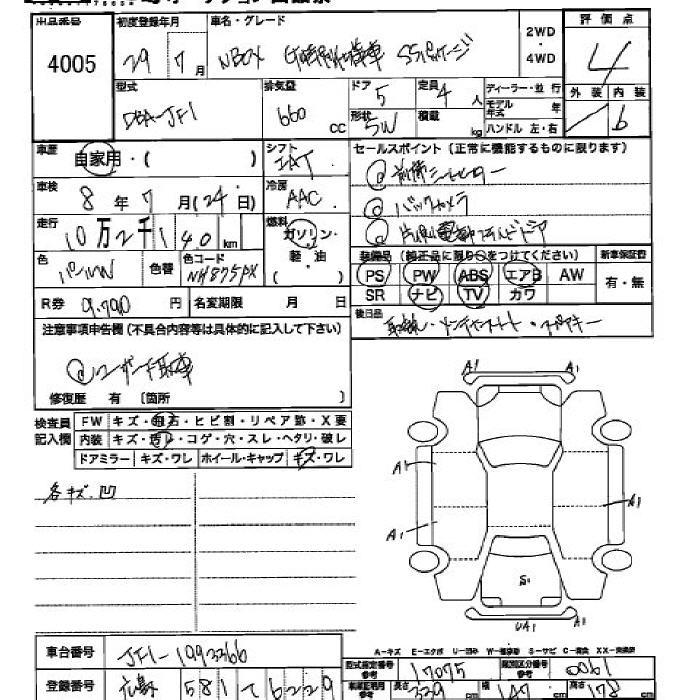 出品番号
4005
初度登録年月
29 7月
車名・グレード
NBOX SSパッケージ
2WD
・
4WD
評価点
4
外装 内装
b
型式
DBA-JF1
排気量
660 CC
ドア 5
形状 5W
定員 4人
積載 kg
ディーラー・並行
モデル年式 年
ハンドル 左・右
車歴
自家用・( )
シフト
IAT
車検
8年7月(24日)
冷房
AAC
走行
10万2千140km
燃料
ガソリン・
軽油
( )
色
パール
色替
色コード
NH875PX
R券 9.790円
名変期限 月 日
セールスポイント(正常に機能するものに限ります)
バックカメラ
装備品(純正品に限り○をつけてください)
新車保証書
PS PW ABS エアB AW
SR ナビ TV カワ
有・無
後日品
注意事項申告欄(不具合内容等は具体的に記入して下さい)
@ユーザー下取車
修復歴 有 〔箇所 〕
検査員
記入欄
FW キズ・飛石・ヒビ割・リペア跡・X要
内装 キズ・汚レ・コゲ・穴・スレ・ヘタリ・破レ
ドアミラー キズ・ワレ ホイール・キャップ キズ・ワレ
各キズ.凹
A1 A1
A1
A1
A1
S1
UA1 A1
A-キズ E-エクボ U-凹み W-補修跡 S-サビ C-腐食 XX-交換済
車台番号 JF1-1993366
型式指定番号 参考 17075
類別区分番号 参考 0061
登録番号 広島 581 て 6229
長さ 339cm 幅 147cm 高さ 178cm